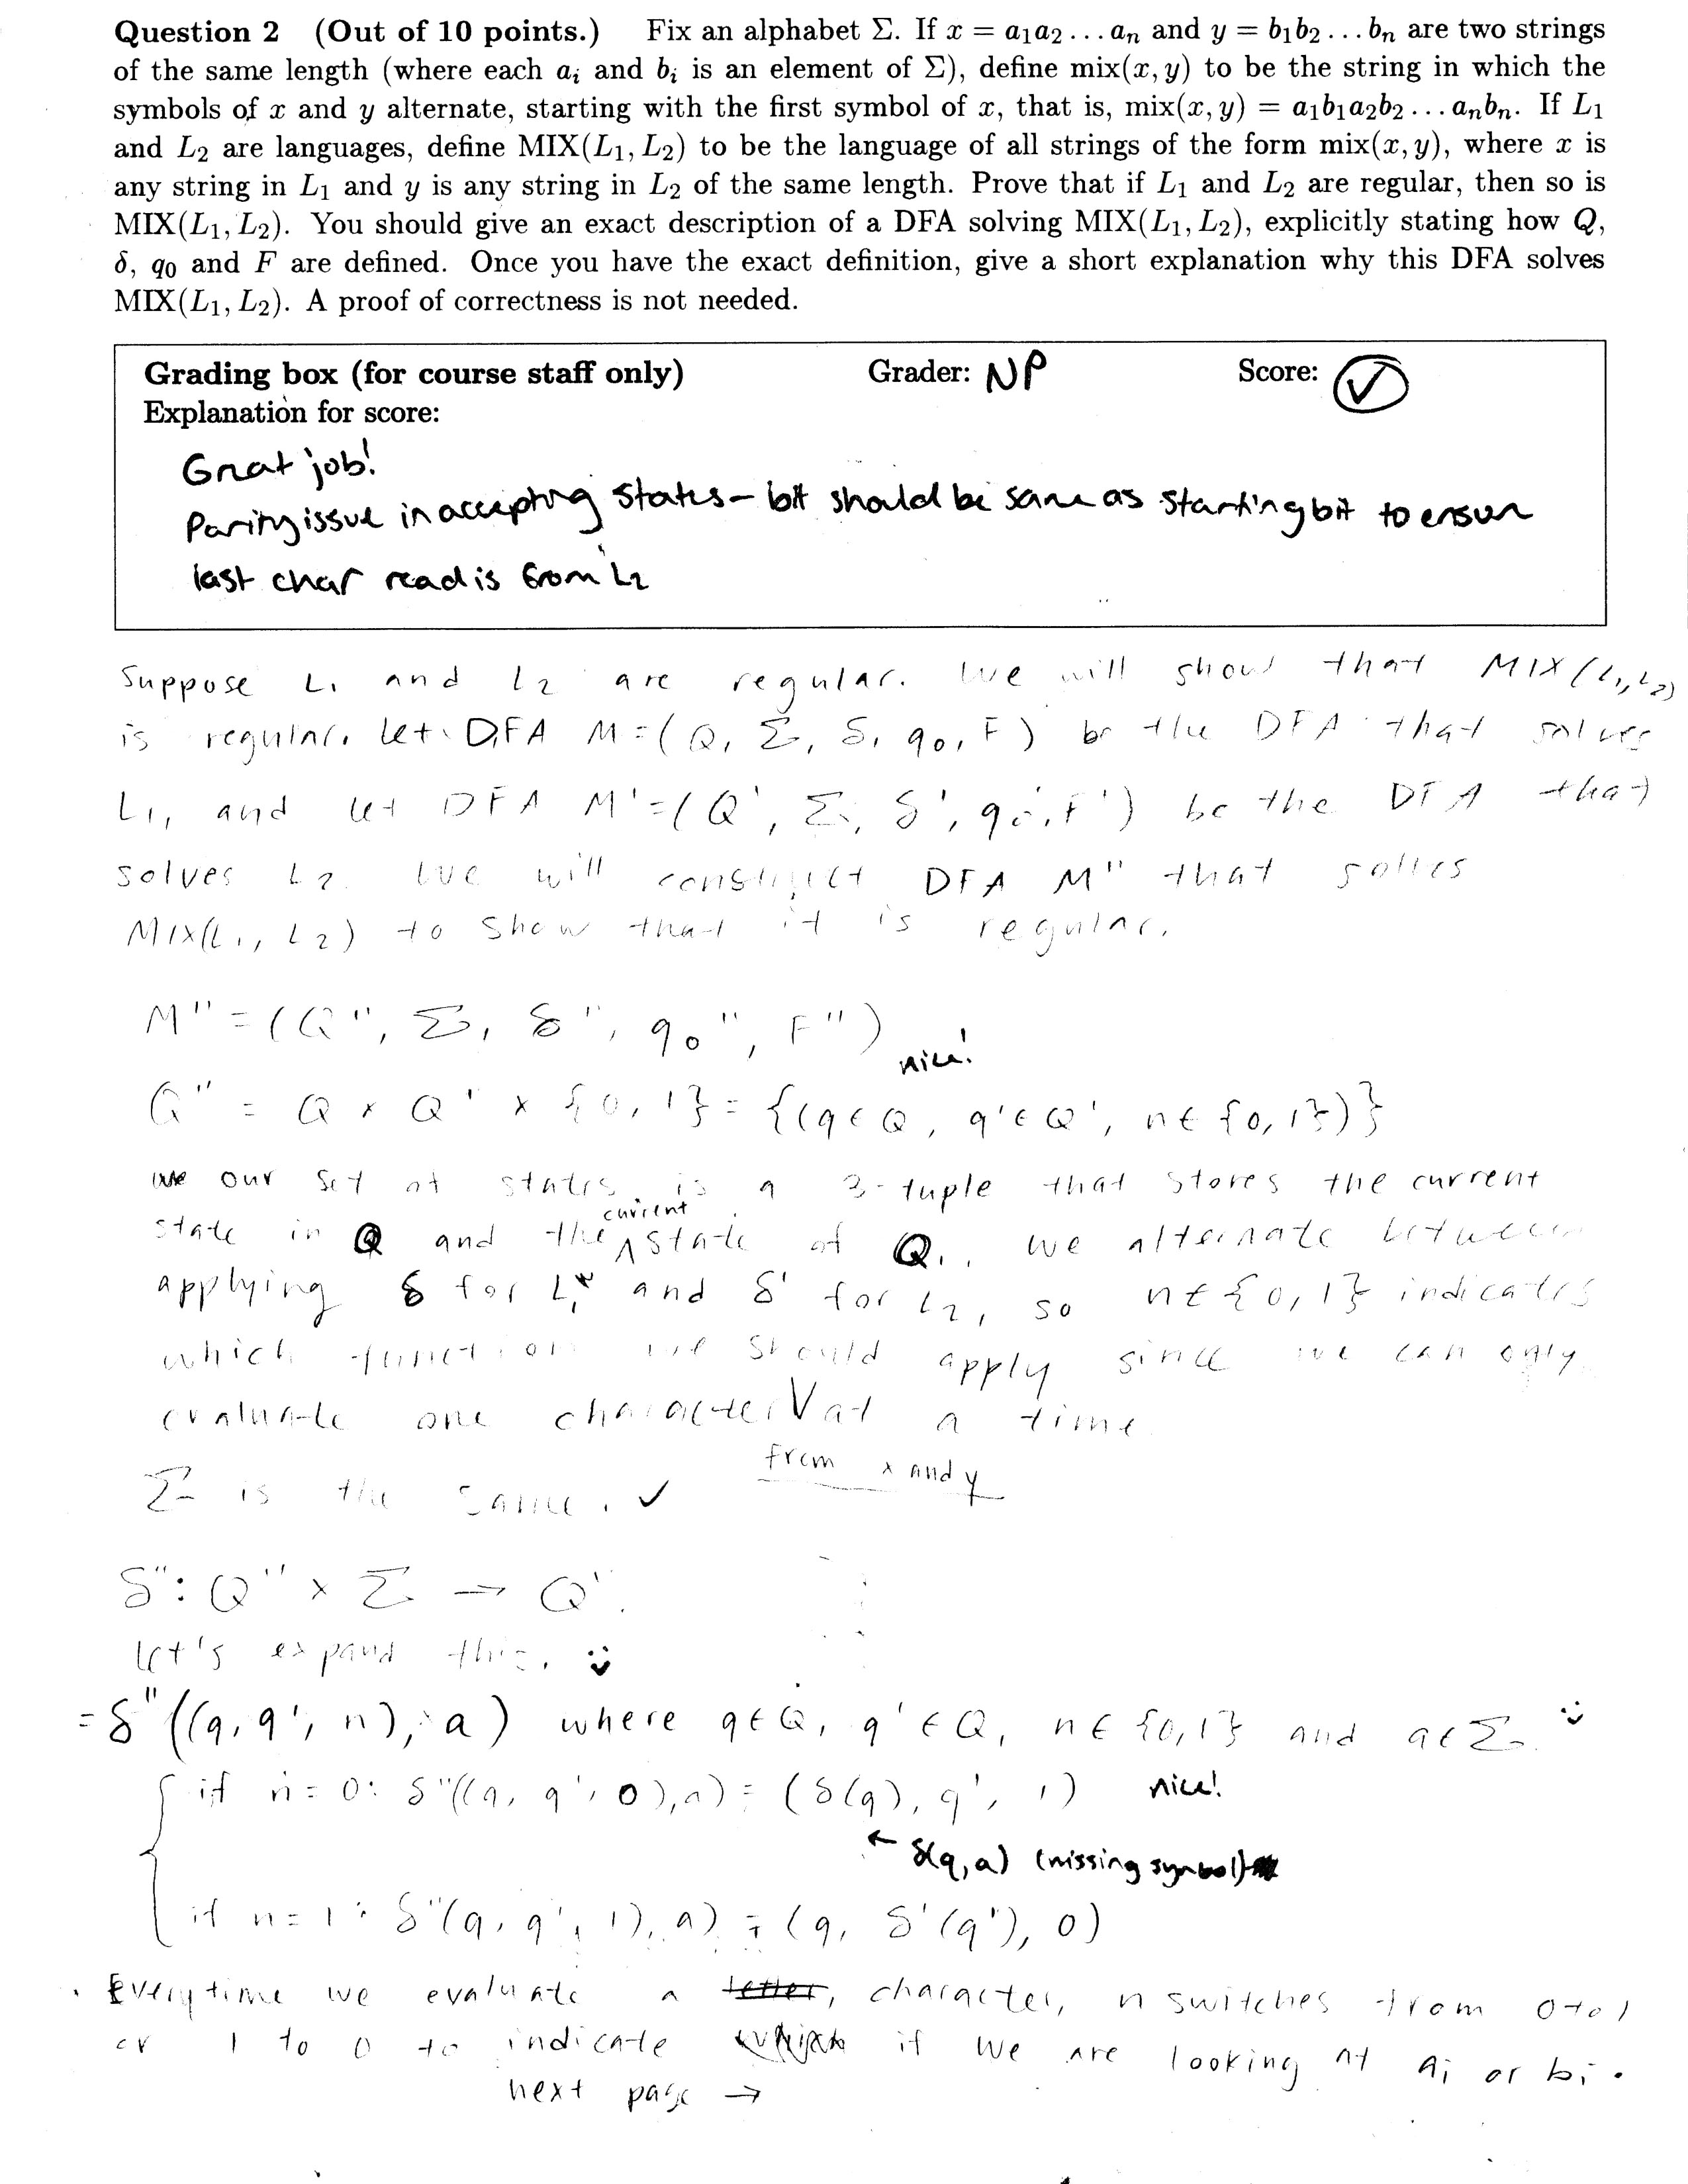 Question 2 (Out of 10 points.) Fix an alphabet Σ. If x = a₁a₂ . . . aₙ and y = b₁b₂ . . . bₙ are two strings
of the same length (where each aᵢ and bᵢ is an element of Σ), define mix(x, y) to be the string in which the
symbols of x and y alternate, starting with the first symbol of x, that is, mix(x, y) = a₁b₁a₂b₂ . . . aₙbₙ. If L₁
and L₂ are languages, define MIX(L₁, L₂) to be the language of all strings of the form mix(x, y), where x is
any string in L₁ and y is any string in L₂ of the same length. Prove that if L₁ and L₂ are regular, then so is
MIX(L₁, L₂). You should give an exact description of a DFA solving MIX(L₁, L₂), explicitly stating how Q,
δ, q₀ and F are defined. Once you have the exact definition, give a short explanation why this DFA solves
MIX(L₁, L₂). A proof of correctness is not needed.
Grading box (for course staff only) Grader: NP Score: ✓
Explanation for score:
Great job!
Parity issue in accepting states – bit should be same as starting bit to ensure
last char read is from L₂
Suppose L₁ and L₂ are regular. We will show that MIX(L₁,L₂)
is regular. Let DFA M = (Q, Σ, δ, q₀, F) be the DFA that solves
L₁, and let DFA M' = (Q', Σ, δ', q₀', F') be the DFA that
solves L₂. We will construct DFA M'' that solves
MIX(L₁, L₂) to show that it is regular.
M'' = (Q'', Σ, δ'', q₀'', F'')
nice!
Q'' = Q × Q' × {0, 1} = {(q ∈ Q, q' ∈ Q', n ∈ {0, 1})}
our set of states is a 3-tuple that stores the current
state in Q and the current state of Q. We alternate between
applying δ for L₁ and δ' for L₂, so n ∈ {0, 1} indicates
which function we should apply since we can only
evaluate one character from x and y at a time
Σ is the same. ✓
δ'': Q'' × Σ → Q''
Let's expand this. :)
= δ''((q, q', n), a) where q ∈ Q, q' ∈ Q, n ∈ {0, 1} and a ∈ Σ. :)
if n = 0: δ''((q, q', 0), a) = (δ(q), q', 1) nice!
← δ(q, a) (missing symbol)
if n = 1: δ''(q, q', 1), a) = (q, δ'(q'), 0)
Every time we evaluate a letter, character, n switches from 0 to 1
or 1 to 0 to indicate if we are looking at aᵢ or bᵢ.
next page →